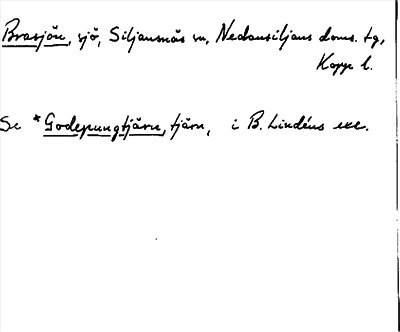 Brasjön, sjö, Siljansnäs sn, Nedansiljans doms. tg,
Kopp. l.
Se *Godepungtjärn, tjärn, i B. Lindéns exc.